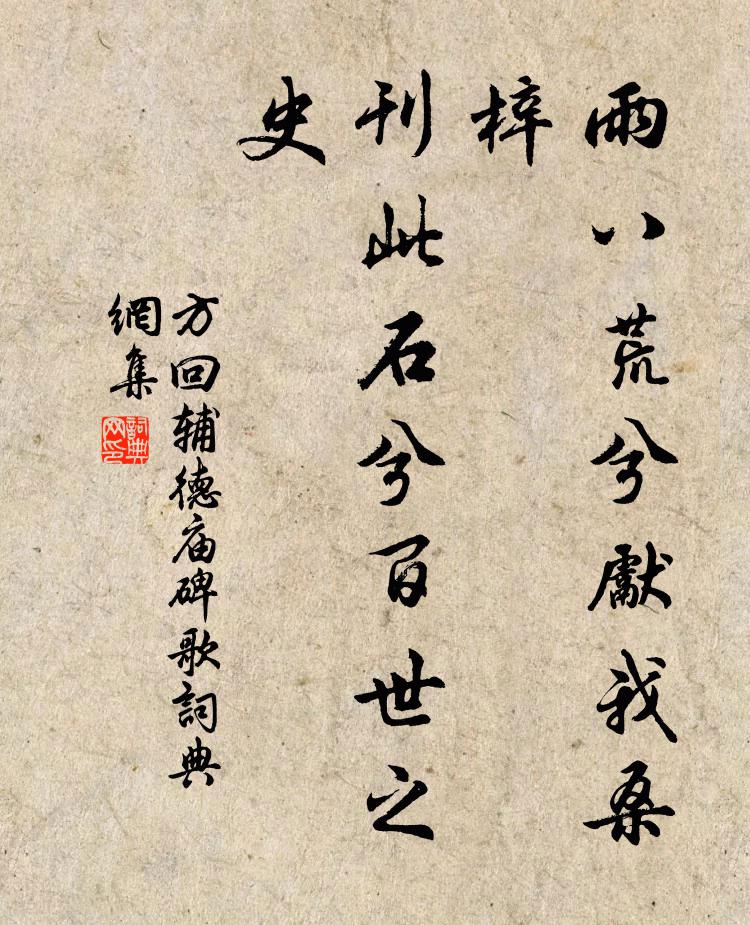 雨八荒兮獻我桑
梓
刊此石兮百世之
史
方回辅德庙碑歌詞典
網集
詞典
网印